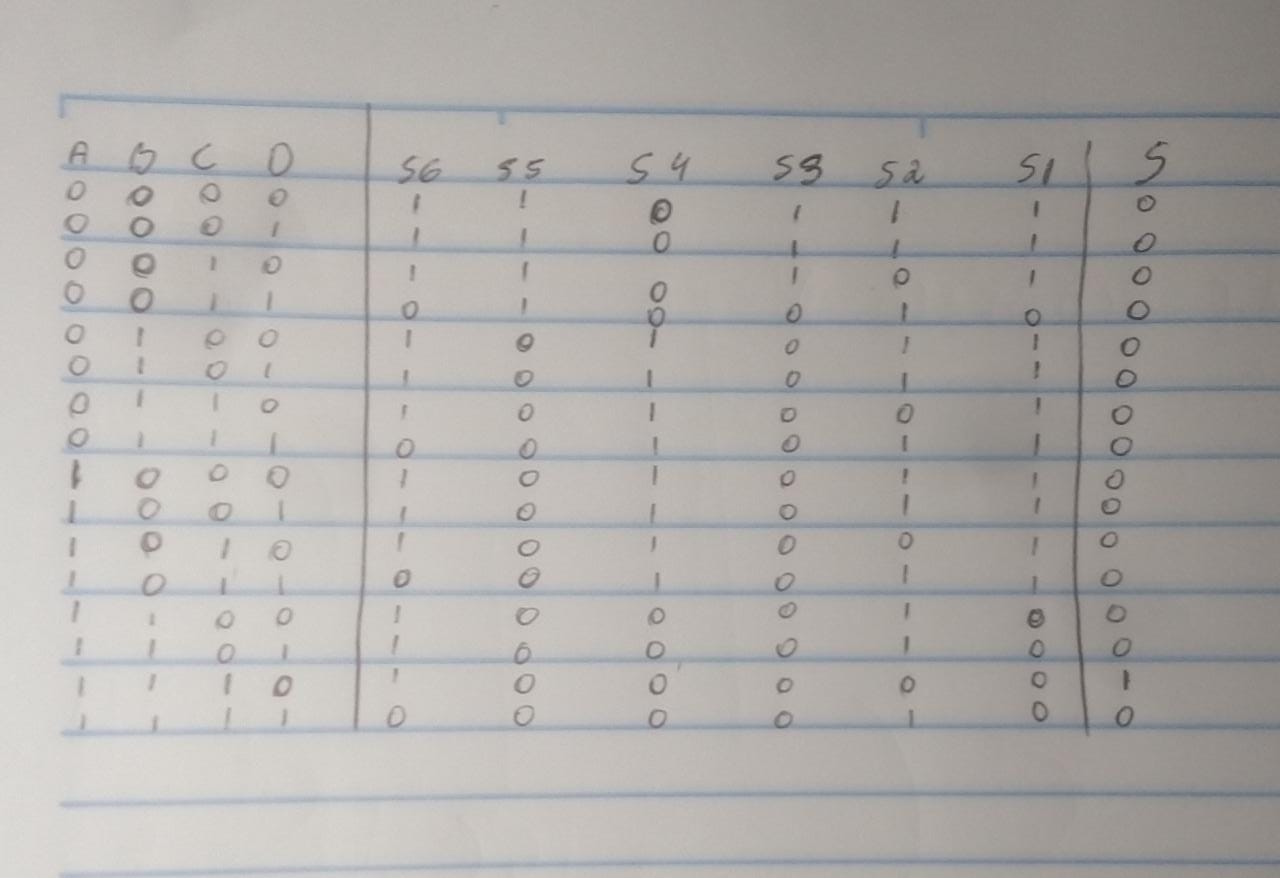 A B C D S6 S5 S4 S3 S2 S1 S
0 0 0 0 1 1 0 1 1 1 0
0 0 0 1 1 1 0 1 1 1 0
0 0 1 0 1 1 0 1 0 1 0
0 0 1 1 0 1 0 0 1 0 0
0 1 0 0 1 0 1 0 1 1 0
0 1 0 1 1 0 1 0 1 1 0
0 1 1 0 1 0 1 0 0 1 0
0 1 1 1 0 0 1 0 1 1 0
1 0 0 0 1 0 1 0 1 1 0
1 0 0 1 1 0 1 0 1 1 0
1 0 1 0 1 0 1 0 0 1 0
1 0 1 1 0 0 1 0 1 1 0
1 1 0 0 1 0 0 0 1 0 0
1 1 0 1 1 0 0 0 1 0 0
1 1 1 0 1 0 0 0 0 0 1
1 1 1 1 0 0 0 0 1 0 0